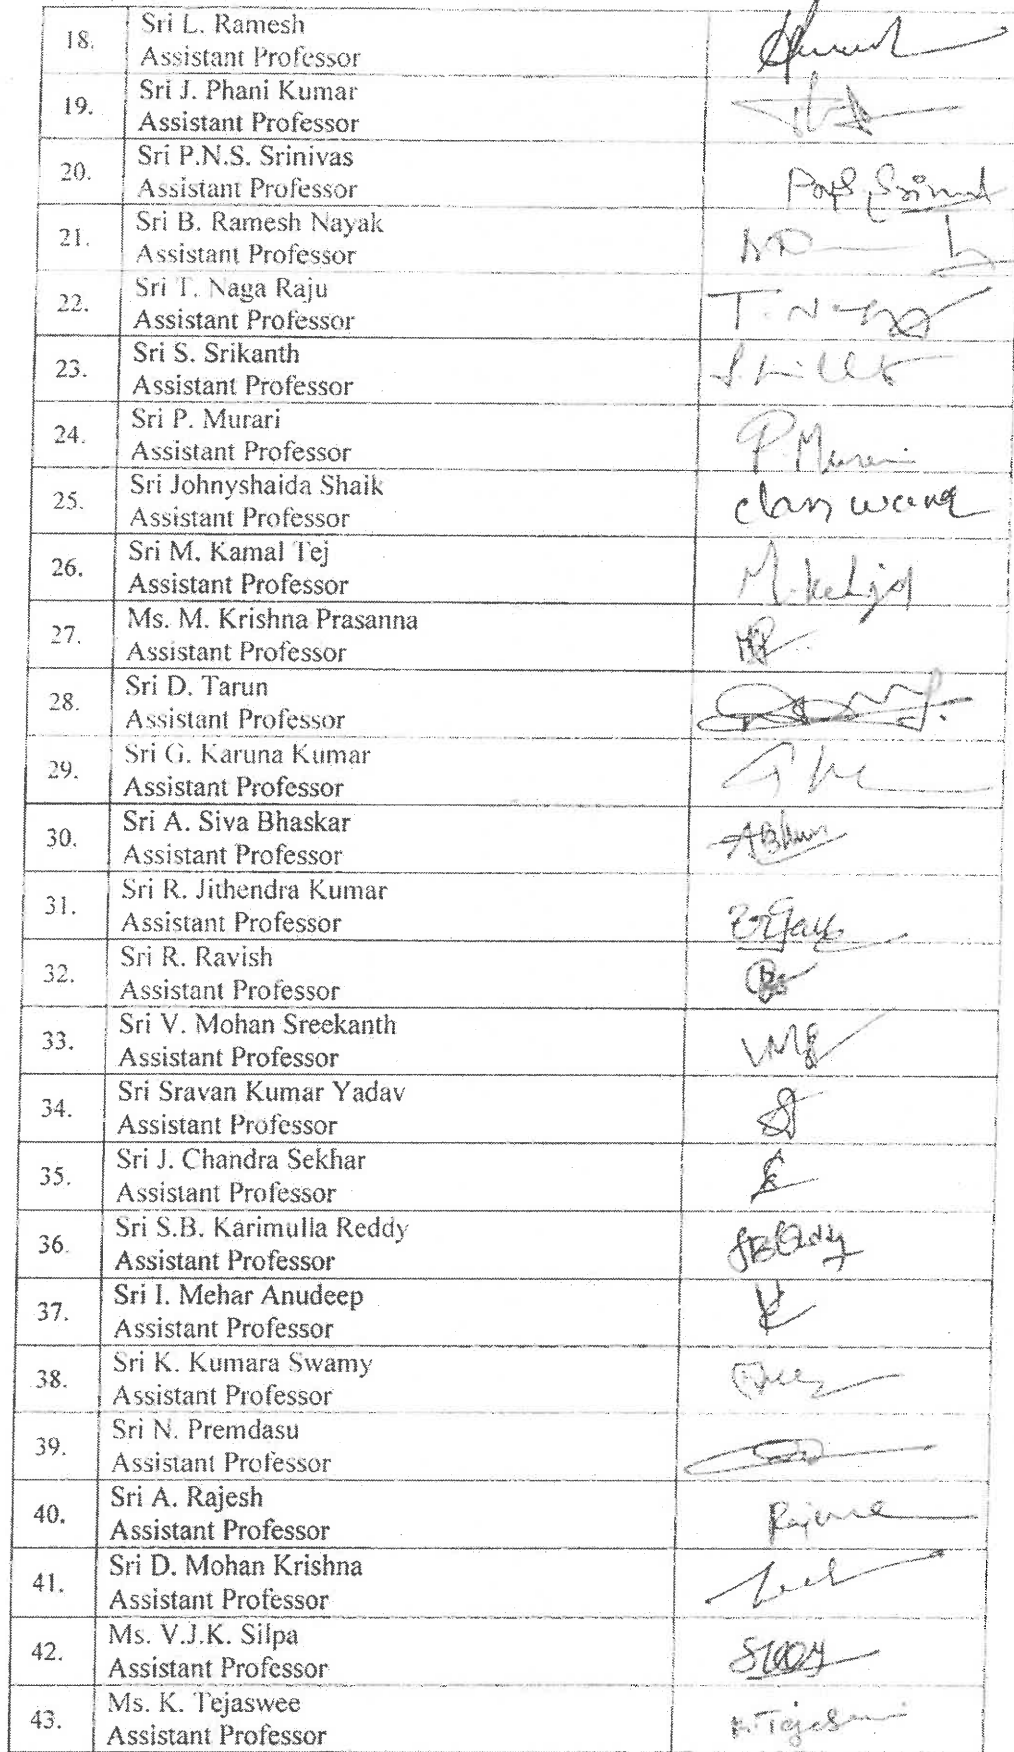 18.
Sri L. Ramesh
Assistant Professor
19.
Sri J. Phani Kumar
Assistant Professor
20.
Sri P.N.S. Srinivas
Assistant Professor
21.
Sri B. Ramesh Nayak
Assistant Professor
22.
Sri T. Naga Raju
Assistant Professor
T. Naga
23.
Sri S. Srikanth
Assistant Professor
24.
Sri P. Murari
Assistant Professor
P. Murari
25.
Sri Johnyshaida Shaik
Assistant Professor
class work
26.
Sri M. Kamal Tej
Assistant Professor
27.
Ms. M. Krishna Prasanna
Assistant Professor
28.
Sri D. Tarun
Assistant Professor
29.
Sri G. Karuna Kumar
Assistant Professor
30.
Sri A. Siva Bhaskar
Assistant Professor
31.
Sri R. Jithendra Kumar
Assistant Professor
32.
Sri R. Ravish
Assistant Professor
33.
Sri V. Mohan Sreekanth
Assistant Professor
34.
Sri Sravan Kumar Yadav
Assistant Professor
35.
Sri J. Chandra Sekhar
Assistant Professor
36.
Sri S.B. Karimulla Reddy
Assistant Professor
37.
Sri I. Mehar Anudeep
Assistant Professor
38.
Sri K. Kumara Swamy
Assistant Professor
39.
Sri N. Premdasu
Assistant Professor
40.
Sri A. Rajesh
Assistant Professor
41.
Sri D. Mohan Krishna
Assistant Professor
42.
Ms. V.J.K. Silpa
Assistant Professor
43.
Ms. K. Tejaswee
Assistant Professor